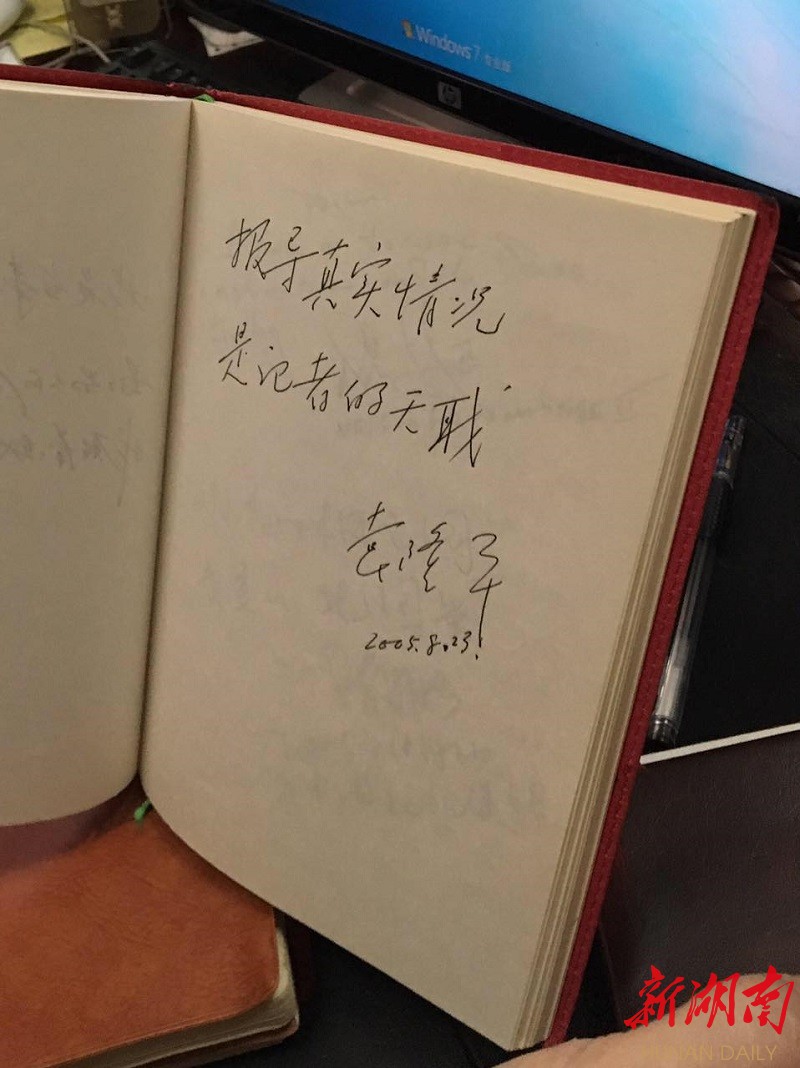 Windows 7 专业版
hp
报导真实情况
是记者的天职
袁隆平
2005.8.23.
新湖南
HUNAN DAILY